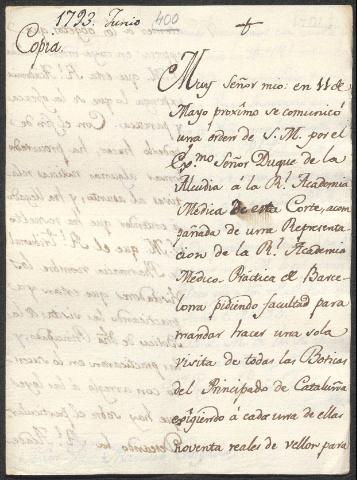 1793. Junio 400
+
Copia.
Muy Señor mio: en 11 de
Mayo proximo se comunicó
una órden de S. M. por el
Exmo Señor Duque de la
Alcudia á la Rl. Academia
Médica de esta Corte, acom
pañada de una Representa
cion de la Rl. Academia
Medico-Práctica de Barce-
lona pidiendo facultad para
mandar hacer una sola
visita de todas las Boticas
del Principado de Cataluña
exigiendo á cada una de ellas
noventa reales de vellon para